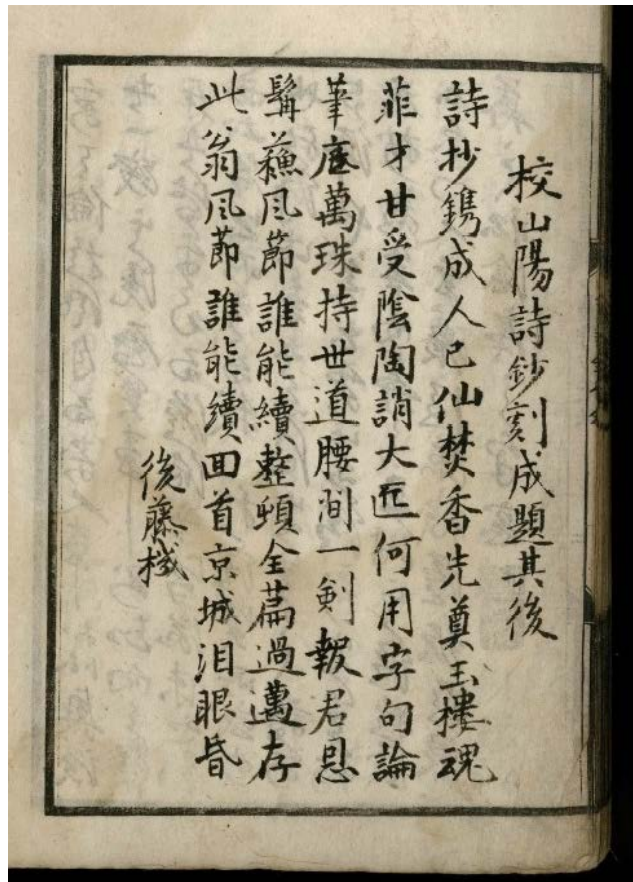 校山陽詩鈔刻成題其後
詩抄鐫成人已仙焚香先奠玉樓魂
菲才甘受陰陶誚大匠何用字句論
筆底萬珠持世道腰間一劍報君恩
髯蘓風節誰能續整頓全篇過邁存
此翁風節誰能續回首京城泪眼昏
後藤機